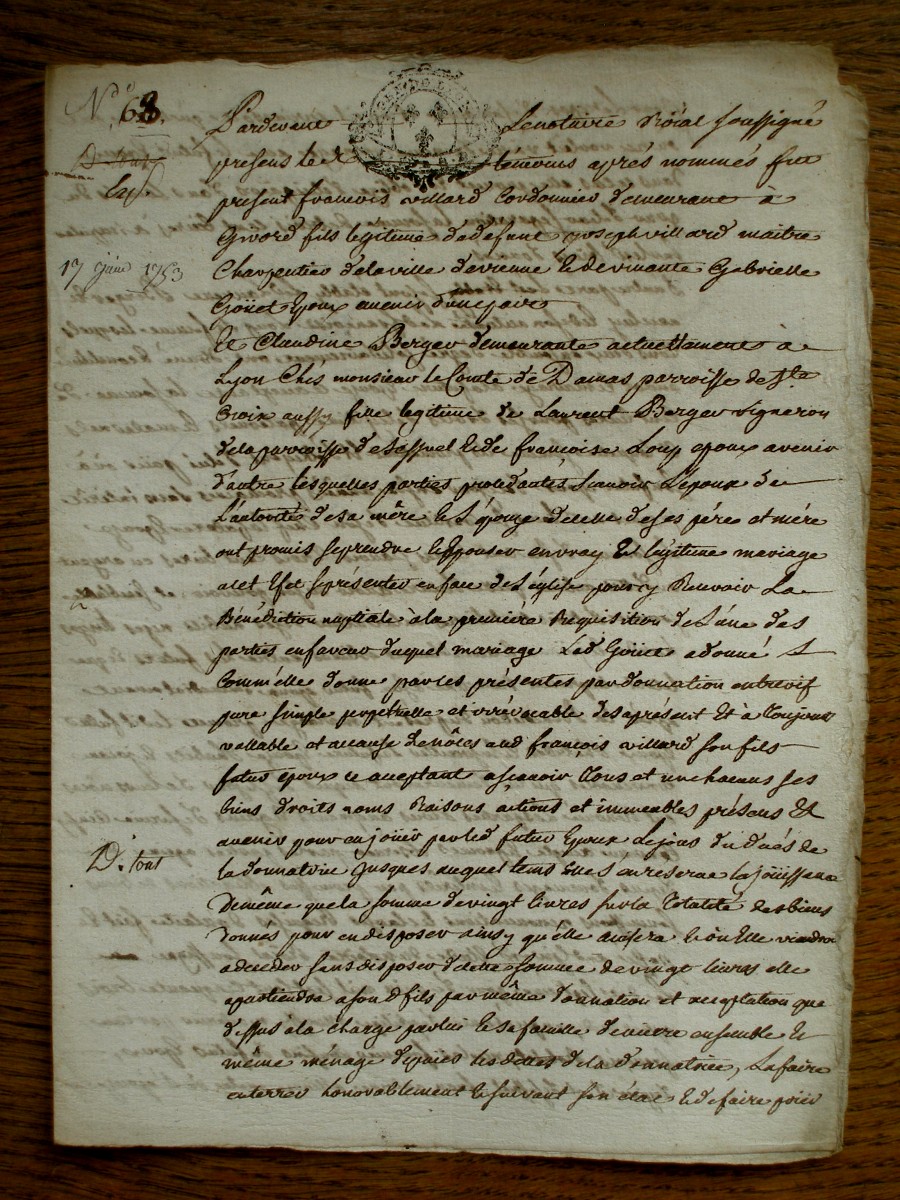 N.° 68.
17 1753
D. tout
Pardevant Le notaire Roial soussigné
présens les témoins aprés nommés fut
present francois villard Cordonnier demeurant à
Givord fils légitime de défunt joseph villard maitre
Charpentier de la ville de vienne et de vivante Gabrielle
Goüet Epoux avenir d'une part
et Claudine Berger demeurante actuellement à
Lyon Chés monsieur le Comte de Damas parroisse de Ste
Croix aussy fille legitime de Laurent Berger vigneron
de la parroisse de et de francoise Loup epouse avenir
d'autre lesquelles parties procédantes scavoir L'époux de
L'autorité de sa mère et L'épouze de celle de ses pére et mére
ont promis se prendre et Epouser en vray et légitime mariage
a cet Efet se présenter en face de L'église pour y Recevoir La
Bénédiction nuptiale à la premiére Requisition de L'une des
parties en faveur duquel mariage Lad Goüet a donné
Comm'elle donne par les présentes par donnation entrevif
pure simple perpetuelle et irrévocable des aprésent Et à Toujours
vallable et a cause de nôces aud francois villard son fils
futur époux ce acceptant ascavoir Tous et un chacuns ses
biens droits noms Raisons actions et immeubles présens Et
avenir pour en joüir par led futur Epoux Le jour du decés de
la donnatrice jusques auquel tems Elle s'en reserve la joüissance
De même que la somme de vingt livres sur la Totalité des biens
donnés pour en disposer ainsy qu'elle avisera et où Elle viendroit
a deceder sans disposer de cette somme de vingt livres elle
apartiendra a son d fils par même donnation et acceptation que
dessus à la charge par lui et sa famille de vivre ensemble Et
même ménage de païer les dettes de la donnatrice, La faire
enterrer honorablement et suivant son état et de faire prier